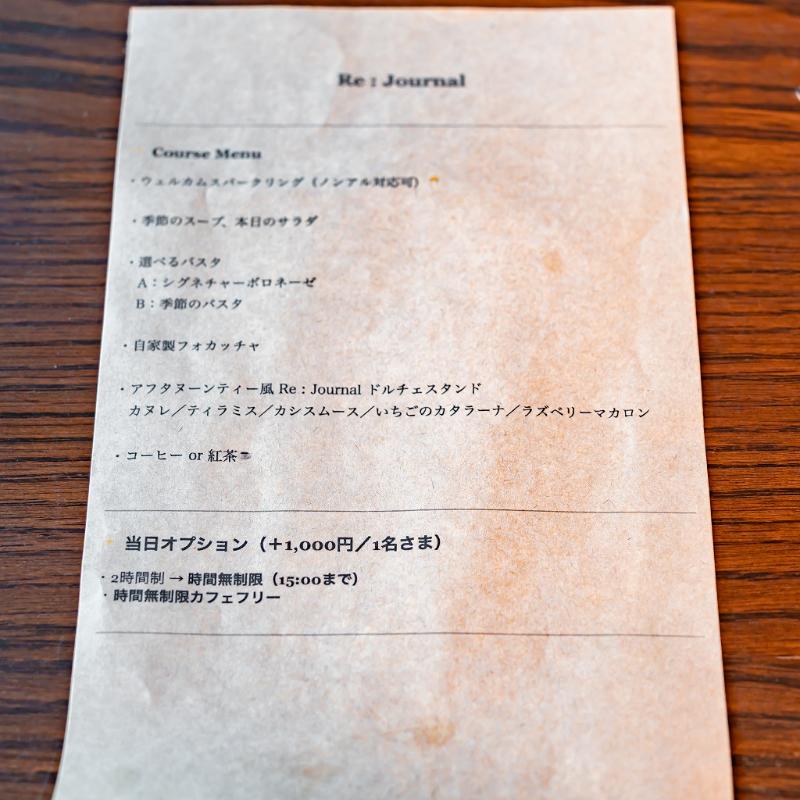 Re : Journal
Course Menu
・ウェルカムスパークリング（ノンアル対応可）
・季節のスープ、本日のサラダ
・選べるパスタ
A：シグネチャーボロネーゼ
B：季節のパスタ
・自家製フォカッチャ
・アフタヌーンティー風 Re : Journal ドルチェスタンド
カヌレ／ティラミス／カシスムース／いちごのカタラーナ／ラズベリーマカロン
・コーヒー or 紅茶
当日オプション（＋1,000円／1名さま）
・2時間制 → 時間無制限（15:00まで）
・時間無制限カフェフリー